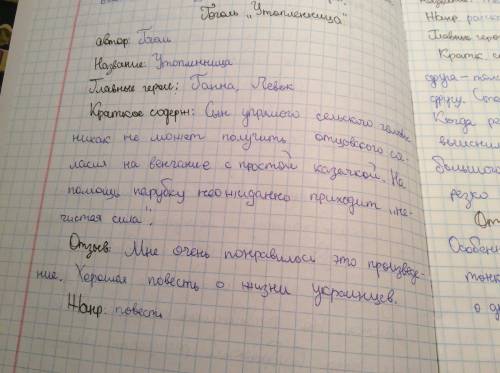 Гоголь „Утопленница"
автор: Гоголь
Название: Утопленница
Главные герои: Ганна, Левок
Краткое содерж: Сын упрямого сельского головы
никак не может получить отцовского со-
гласия на венчание с простой казачкой. На
помощь парубку неожиданно приходит „не-
чистая сила".
Отзыв: Мне очень понравилось это произведе-
ние. Хорошая повесть о жизни украинцев.
Жанр: повести
Жанр: расск
Главные геро
Кратк. со
друга - пол
другу.
Когда ре
выясним
большого
резко
От
Особен
тонк
о др